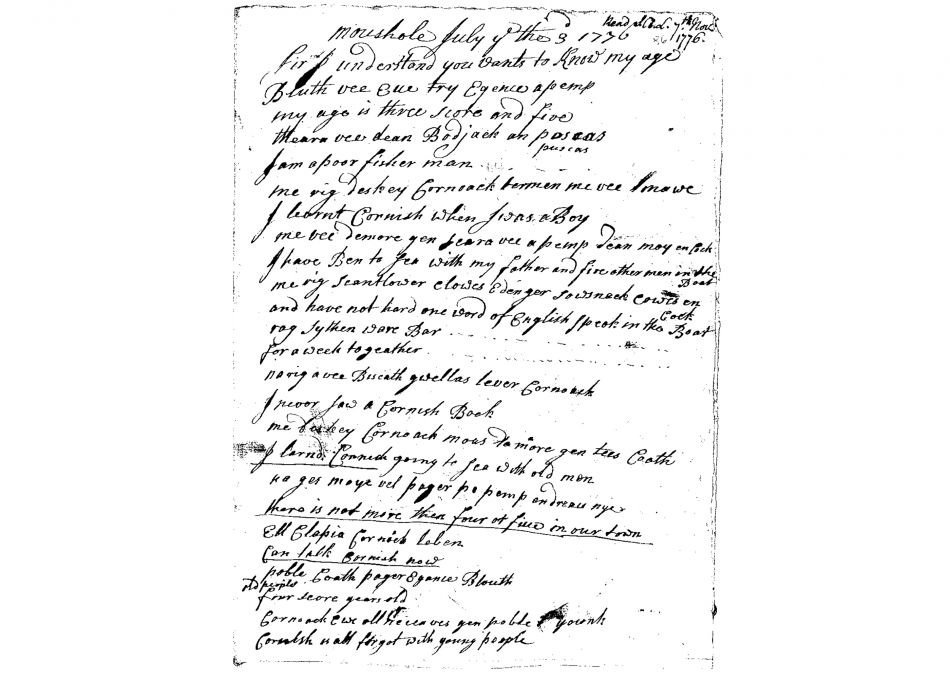 Read at Ch. L. 7th Novr 1776.
moushole July ye the 3d 1776
Sir I understand you wants to Know my age
Bluth vee Eue try Egence a pemp
my age is three score and five
theara vee dean Bodjack an poscas
puscas
I am a poor fisher man
me rig deskey Cornoack termen me vee mawe
I learnt Cornish when I was a Boy
me vee demore gen seara vee a pemp dean moy en Cock
I have Ben to Sea with my father and five other men in the
Boat
me rig Scantlower clowes Edenger sowsnack cowes en
Cock
and have not hard one word of English Speok in the Boat
rag sythen ware Bar
for a week togeather
no rig a vee Biscath gwellas lever Cornoack
I never Saw a Cornish Book
me deskey Cornoack mous da more gen tees Coath
I larnd Cornish going to Sea with old men
na ges moye vel pager po pemp endreau nye
there is not more then four or five in our town
Ell Clapia Cornoack leben
Can talk Cornish now
poble Coath pager Egance Blouth
old people
four score years old
Cornoack Ewe all neceaves gen poble younk
Cornish is all forgot with young people